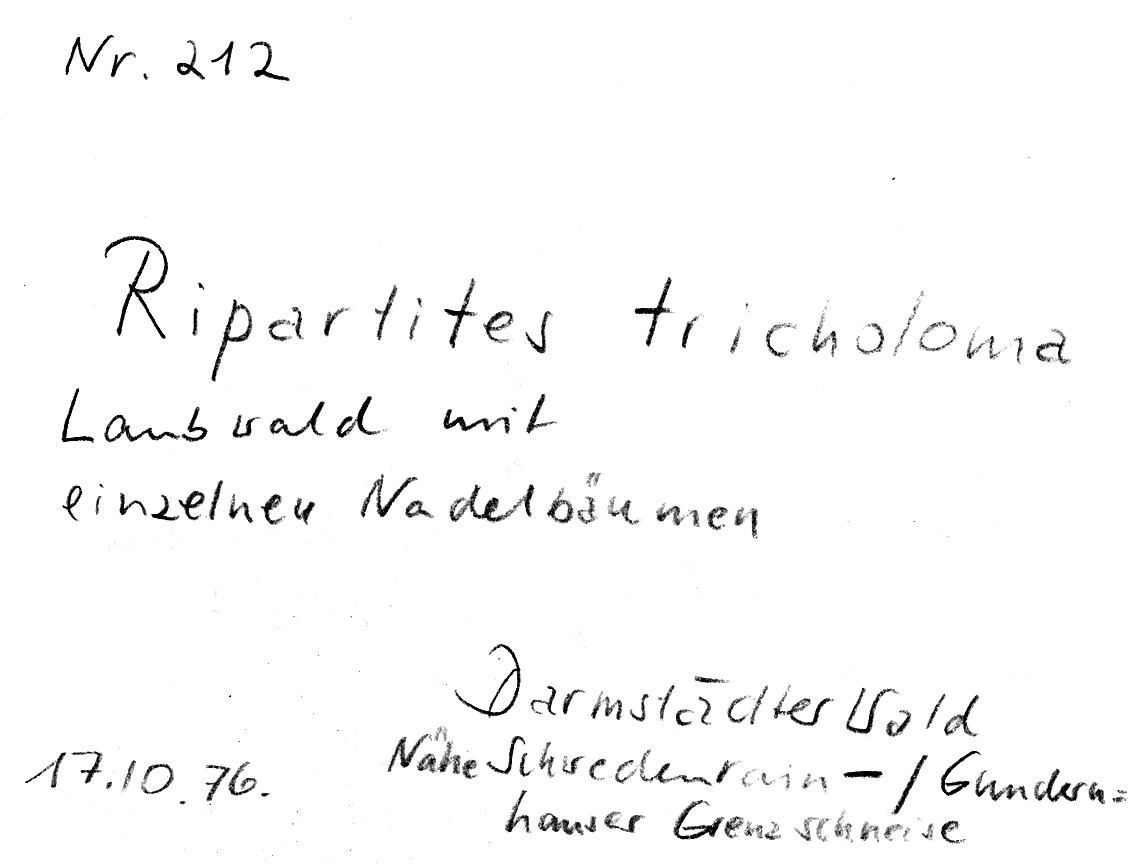 Nr. 212
Ripartites tricholoma
Laubwald mit
einzelnen Nadelbäumen
Darmstädter Wald
17.10.76. Nähe Schwedenrain - / Gundern=
hauser Grenzschneise